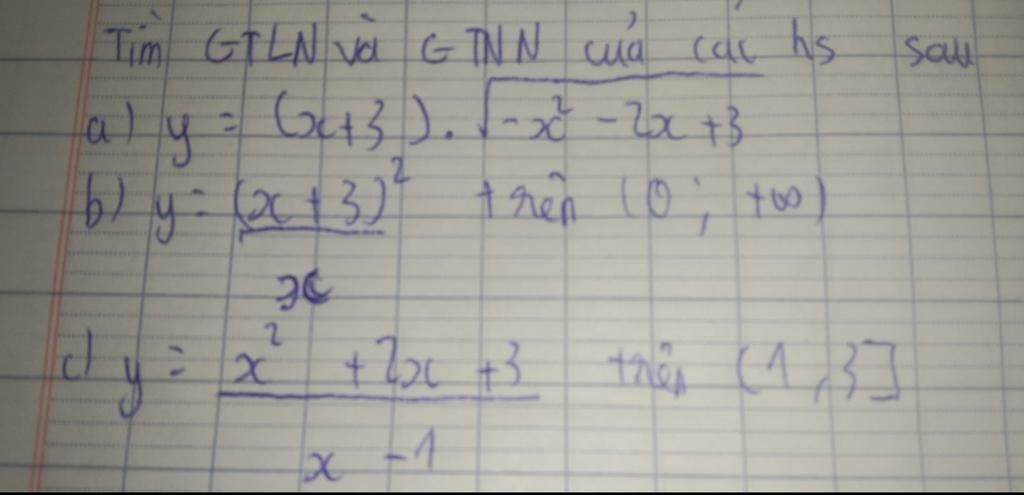 Tìm GTLN và GTNN của các hs sau
a) y = (x+3).√(-x² - 2x + 3)
b) y = (x+3)²/x trên (0; +∞)
c) y = (x² + 2x + 3)/(x - 1) trên (1, 3]